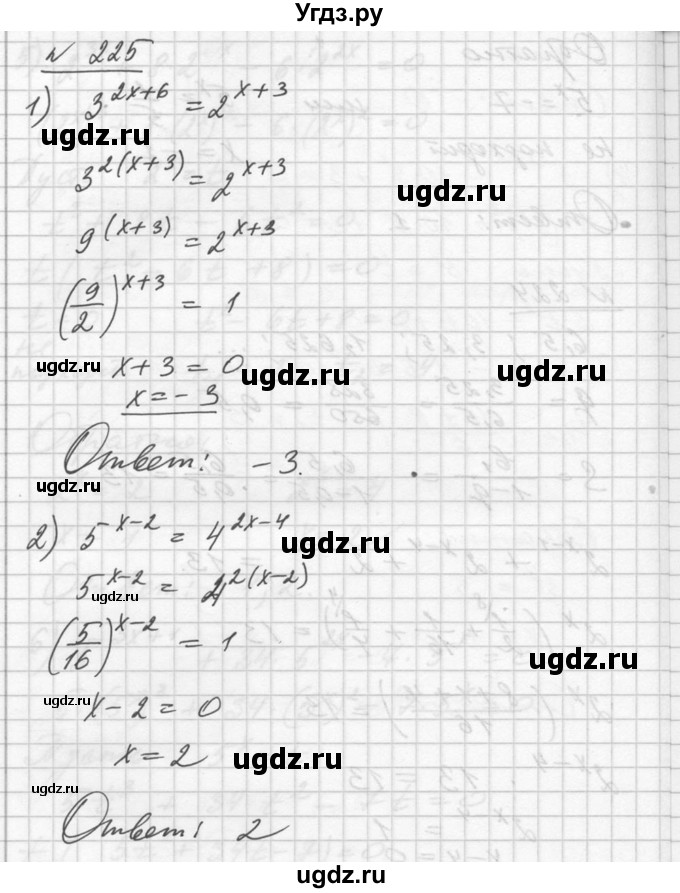 Угдз.ру
№ 225
1) 3^(2x+6) = 2^(x+3)
ugdz.ru
3^(2(x+3)) = 2^(x+3)
ugdz.ru
9^((x+3)) = 2^(x+3)
(9/2)^(x+3) = 1
ugdz.ru ugdz.ru ugdz.ru
x+3 = 0
x = -3
Ответ: -3.
ugdz.ru
2) 5^(x-2) = 4^(2x-4)
ugdz.ru
5^(x-2) = 4^(2(x-2))
ugdz.ru
(5/16)^(x-2) = 1
ugdz.ru
x-2 = 0
x = 2
ugdz.ru
ugdz.ru
Ответ: 2
ugdz.ru